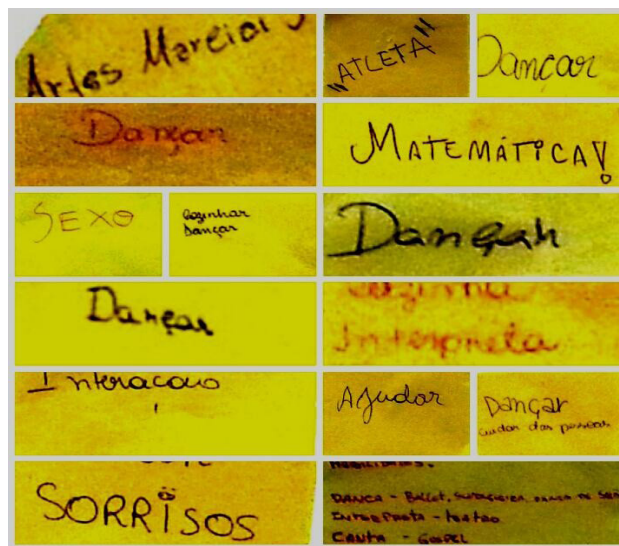 Artes Marciais
"ATLETA"
Dançar
Dançar
MATEMÁTICA!
SEXO
Cozinhar
Dançar
Dançar
Dançar
Cozinha
Interpreta
Interacaoio
Ajudar
Dançar
Cuidar das pessoas
SORRISOS
HABILIDADES:
DANÇA - Ballet,
INTERPRETA - teatro
CANTA - GOSPEL